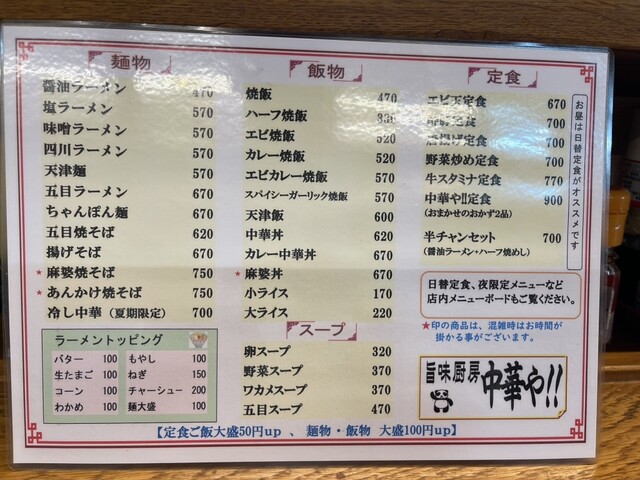 麺物
醤油ラーメン 470
塩ラーメン 570
味噌ラーメン 570
四川ラーメン 570
天津麺 570
五目ラーメン 670
ちゃんぽん麺 670
五目焼そば 620
揚げそば 670
★麻婆焼そば 750
★あんかけ焼そば 750
冷し中華（夏期限定） 700
ラーメントッピング
バター 100 もやし 100
生たまご 100 ねぎ 150
コーン 100 チャーシュー 200
わかめ 100 麺大盛 100
飯物
焼飯 470
ハーフ焼飯
エビ焼飯 520
カレー焼飯 520
エビカレー焼飯 570
スパイシーガーリック焼飯 570
天津飯 600
中華丼 620
カレー中華丼 670
★麻婆丼 670
小ライス 170
大ライス 220
スープ
卵スープ 320
野菜スープ 370
ワカメスープ 370
五目スープ 470
定食
エビ天定食 670
定食 700
唐揚げ定食 700
野菜炒め定食 700
牛スタミナ定食 770
中華や!!定食 900
(おまかせのおかず2品)
半チャンセット 700
(醤油ラーメン+ハーフ焼めし)
お昼は日替定食がオススメです
日替定食、夜限定メニューなど
店内メニューボードもご覧ください。
★印の商品は、混雑時はお時間が
掛かる事がございます。
旨味厨房 中華や!!
【定食ご飯大盛50円up 、 麺物・飯物 大盛100円up】